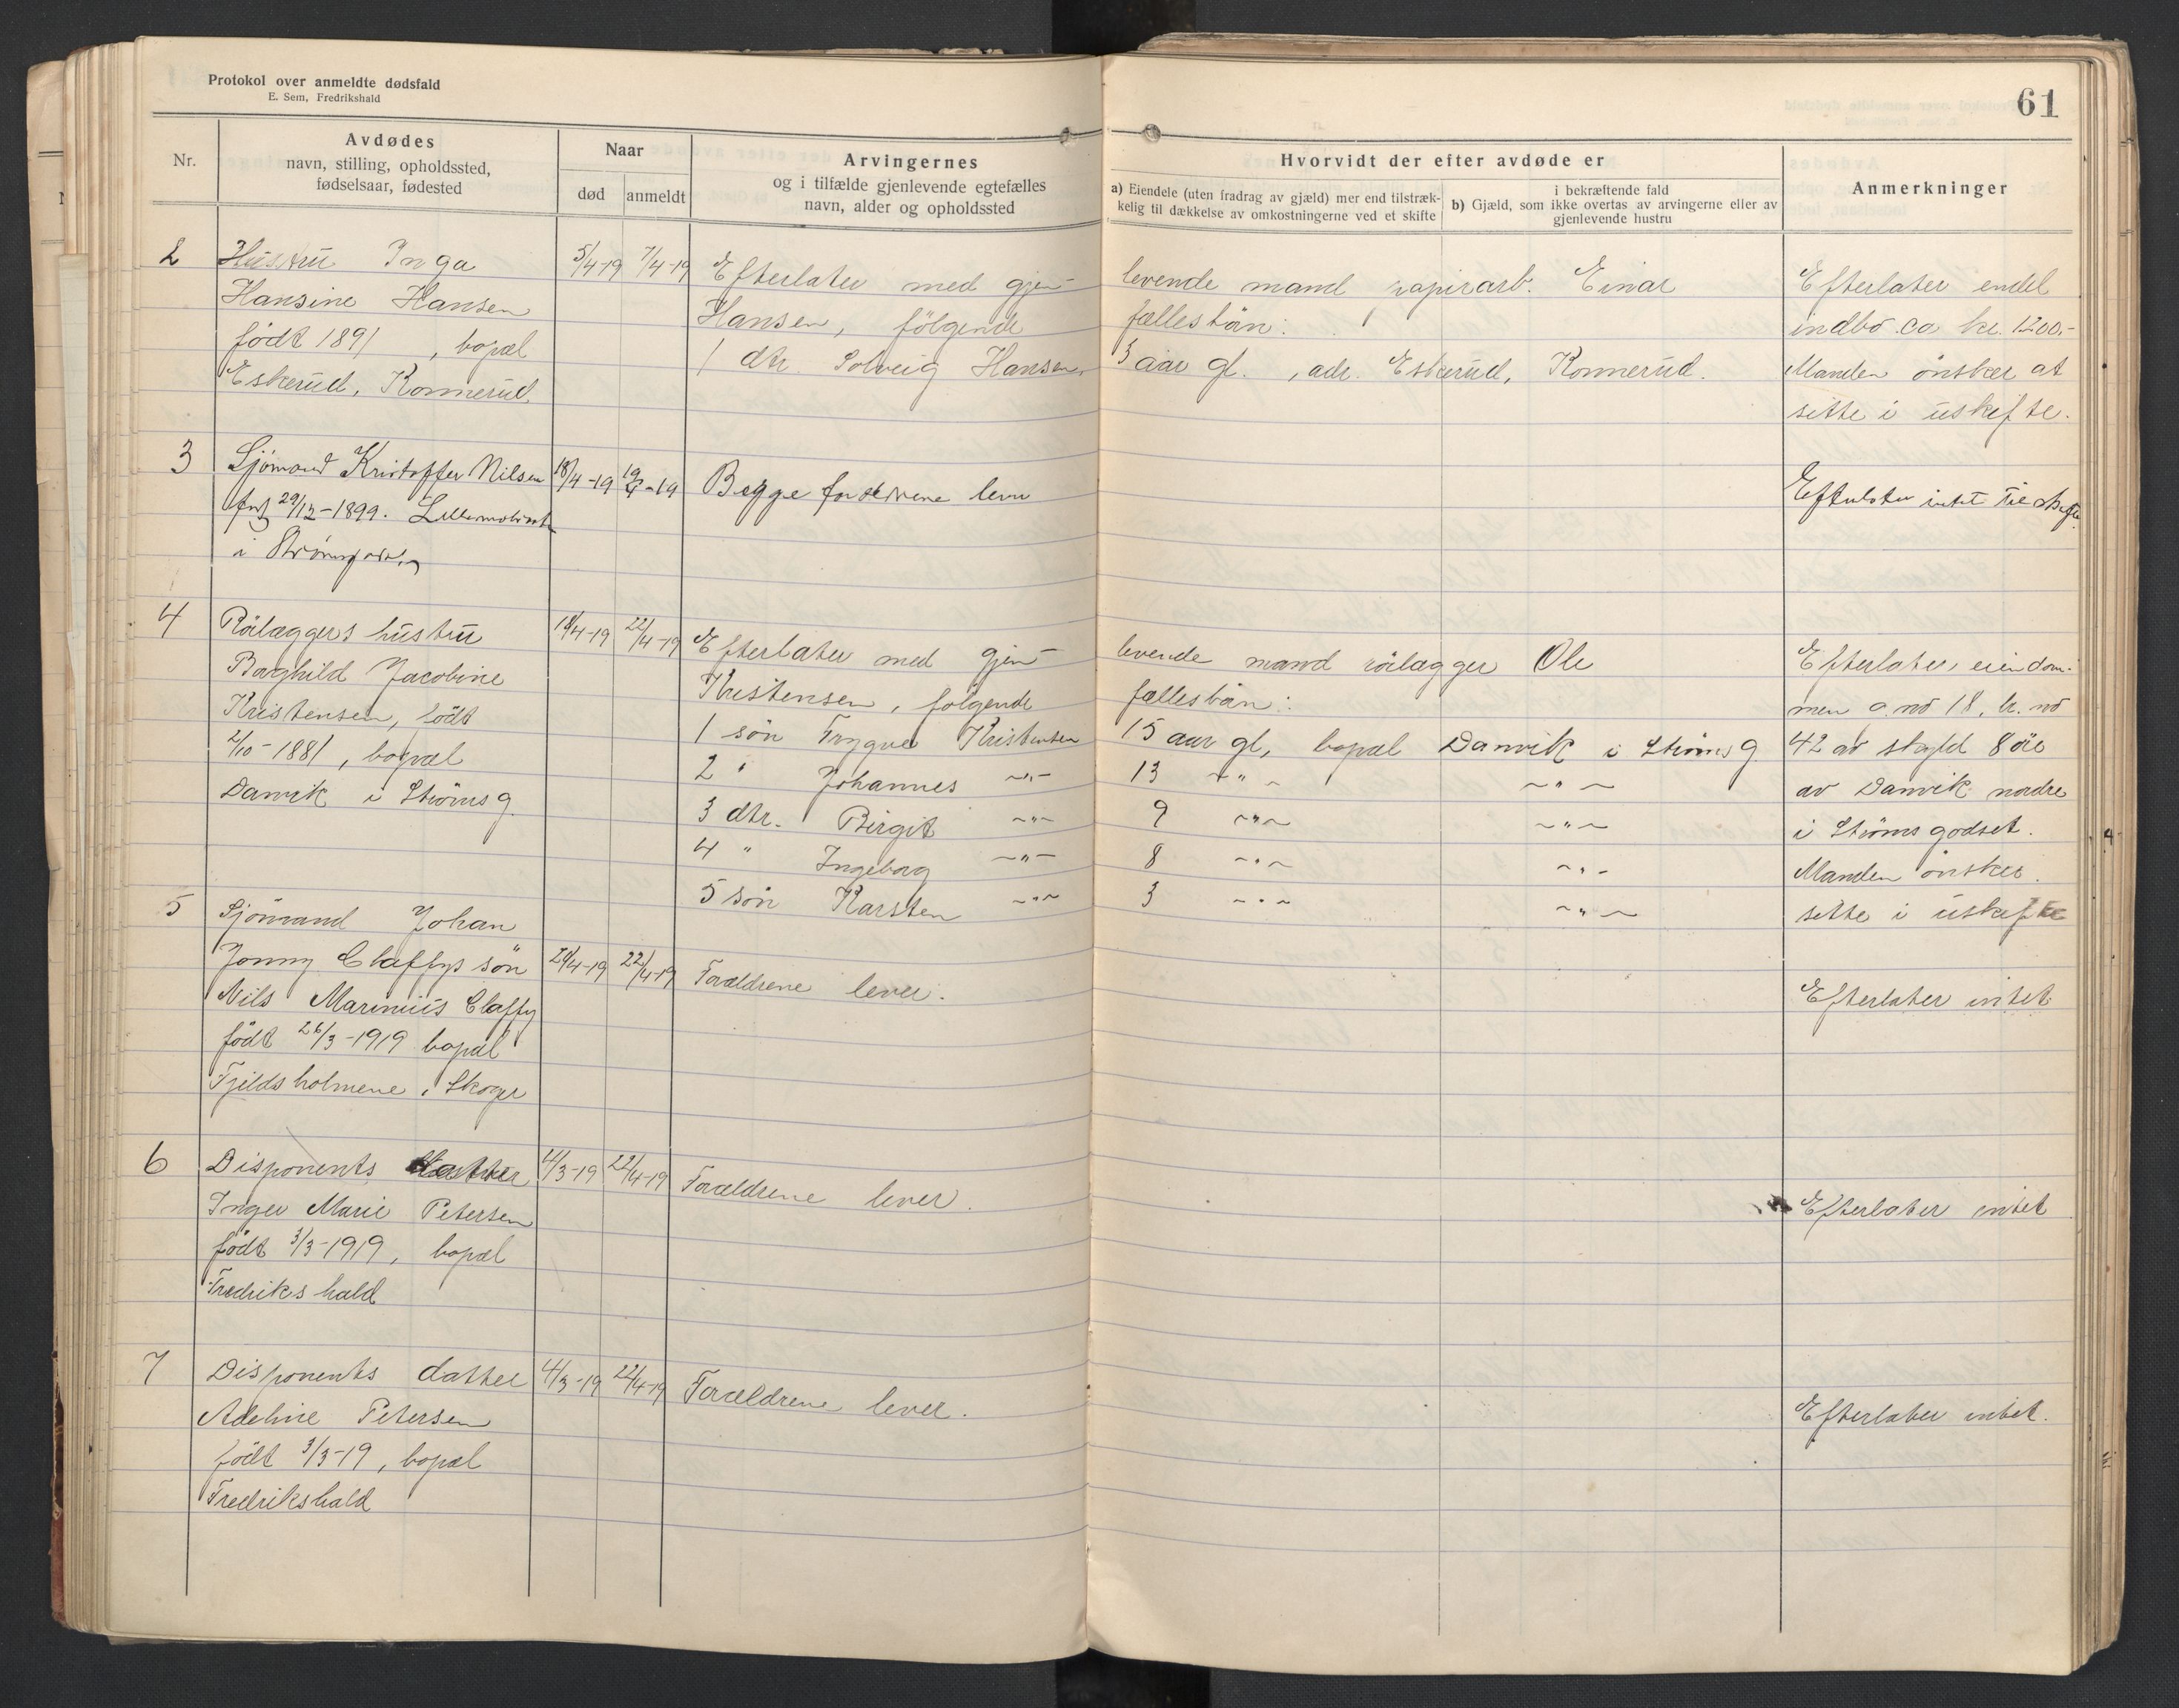 Protokol over anmeldte dødsfald
E. Sem, Fredrikshald
61
Nr.
Avdødes
navn, stilling, opholdssted,
fødselsaar, fødested
Naar
død
anmeldt
Arvingernes
og i tilfælde gjenlevende egtefælles
navn, alder og opholdssted
Hvorvidt der efter avdøde er
a) Eiendele (uten fradrag av gjæld) mer end tilstræk-
kelig til dækkelse av omkostningerne ved et skifte
i bekræftende fald
b) Gjæld, som ikke overtas av arvingerne eller av
gjenlevende hustru
Anmerkninger
2
Hustru Inga
Hansine Hansen
födt 1891 , bopæl
Eskerud, Konnerud.
5/4-19
7/4-19
Efterlater med gjen- levende mand papirarb. Einar
Hansen, fölgende fællesbön:
1 dtr. Solveig Hansen, 3 aar gl. , adr. Eskerud, Konnerud.
Efterlater endel
indbo ca kr. 1200,-
Manden önsker at
sitte i uskifte.
3
Sjömand Kristoffer Nilsen
født 29/12-1899.
i
18/4-19
19/4-19
Begge forældrene lever
Efterlater intet til skifte.
4
Rölæggers hustru
Borghild Jacobine
Kristensen, födt
2/10-1881, bopæl
Danvik i Strömsg.
18/4-19
22/4-19
Efterlater med gjen- levende mand rölægger Ole
Kristensen, fölgende fællesbön:
1 sön Trygve Kristensen 15 aar gl, bopæl Danvik i Strömsg.
2 " Johannes -"- 13 -"- -"-
3 dtr. Birgit -"- 9 -"- -"-
4 " Ingeborg -"- 8 -"- -"-
5 sön Karsten -"- 3 -"- -"-
Efterlater eiendom-
men g. no 18, br. no
42 av skyld 8 öre
av Danvik nordre
i Strömsgodset.
Manden önsker
sitte i uskifte
5
Sjömand Johan
Jonny Claffys sön
Nils Marinius Claffy
födt 26/3-1919 bopæl
Fjeldsholmene i Skoger
20/4-19
22/4-19
Forældrene lever.
Efterlater intet
6
Disponents datter
Inger Marie Petersen
födt 3/3-1919, bopæl
Fredrikshald
4/3-19
22/4-19
Forældrene lever.
Efterlater intet
7
Disponents datter
Adeline Petersen
födt 3/3-19, bopæl
Fredrikshald
4/3-19
22/4-19
Forældrene lever.
Efterlater intet.